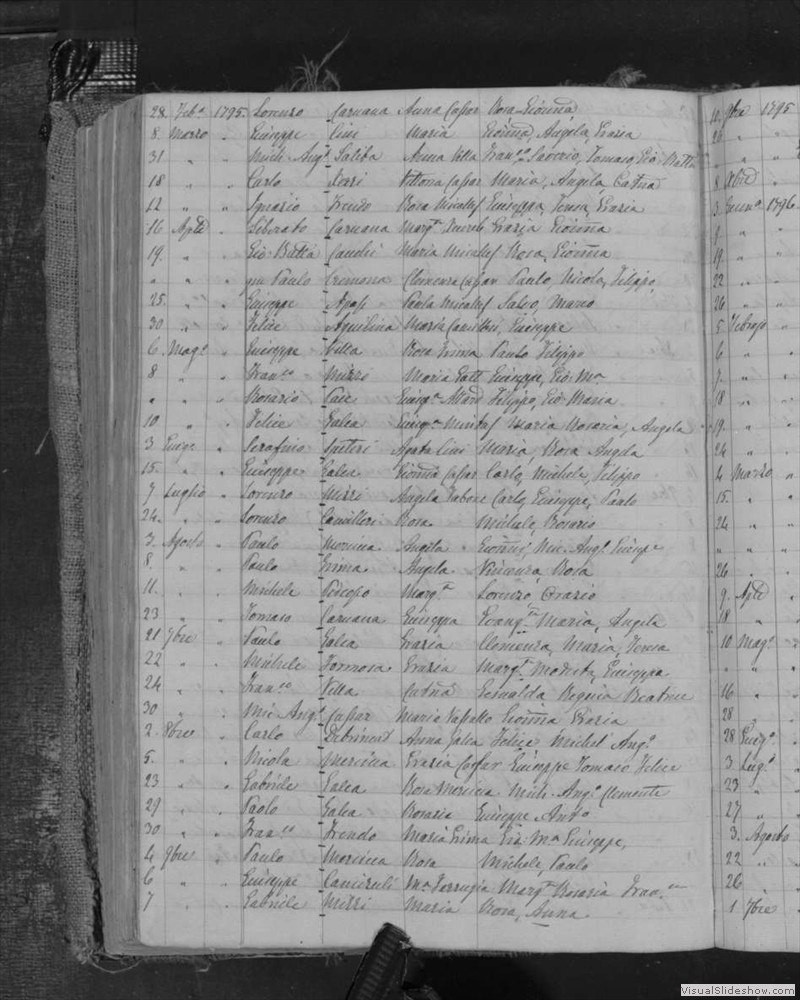 28 Feb. 1795 Lorenzo Caruana Anna Casar Rosa Gionna
8 Marzo " Giuseppe Cini Maria Gionna, Angela, Grazia
31 " " Mich Ang. Saliba Anna Vella Fran.co Saverio, Tomaso, Gio Batta
18 " " Carlo Xerri Vittoria Casar Maria, Angela Catna
12 " " Ignazio Trendo Rosa Micallef Giuseppa, Teresa, Grazia
16 Aple " Liborato Caruana Marg.a Grazia Gionna
19 " " Gio Batta Maria Micallef Rosa, Gionna
" " " Paulo Cremona Clemenza Casar Paulo, Nicola, Filippo,
25 " " Giuseppe Apap Paola Micallef Salvo, Marco
30 " " Felice Aquilina Maria Camilleri, Giuseppe
6 Mag.o " Giuseppe Vella Rosa Grima Paulo Filippo
8 " " Fran.co Mizzi Maria Gatt Giuseppe, Gio: M.a
" " " Rosario Pace Giusp.a Attard Filippo, Gio: Maria
10 " " Felice Galea Giusp.a Maria Rosaria, Angela
3 Giug.o " Serafino Spiteri Agata Cini Maria, Rosa Angela
15 " " Giuseppe Galea Gionna Casar Carlo, Michele, Filippo
7 Luglio " Lorenzo Mizzi Angela Tabone Carlo, Giuseppe, Paulo
24 " " Lorenzo Camilleri Rosa Michele, Rosario
3 Agosto " Paulo Mercieca Angela Mic. Ang.o Giuseppe
8 " " Paulo Grima Angela Vincenza, Rosa
11 " " Michele Piscopo Marg.a Lorenzo, Orazio
23 " " Tomaso Caruana Giuseppa Evang.ta Maria, Angela
21 7bre " Paulo Galea Grazia Clemenza, Maria, Teresa
22 " " Michele Formosa Grazia Marg.a Modesta, Giuseppa
24 " " Fran.co Vella Catna Regina Beatrice
30 " " Mic Ang.o Casar Maria Gionna Grazia
2 8bre " Carlo Debrincat Anna Galea Felice Michel Ang.o
5 " " Nicola Mercieca Grazia Casar Giuseppe Tomaso, Felice
23 " " Gabriele Galea Rosa Mercieca Mich. Ang.o Clemente
29 " " Paolo Galea Rosaria Giuseppe Anto
30 " " Fran.co Trendo Maria Grima Gio: M.a Giuseppe,
4 9bre " Paulo Mercieca Rosa Michele, Paulo
6 " " Giuseppe M.a Farrugia Marg.a Rosaria Fran.ca
7 " " Gabriele Mizzi Maria Rosa, Anna
9bre 1795
8 Xbre "
3 Genn.o 1796
9 " "
19 " "
22 " "
26 " "
5 Febrajo
6 " "
9 " "
18 " "
19 " "
24 " "
4 Marzo "
15 " "
24 " "
" " "
26 " "
9 Aple "
18 " "
10 Mag.o
" " "
16 "
28 "
28 Giug.o
3 Lug.o
23 "
27 "
3 Agosto
22 "
26 "
1 7bre
VisualSlideshow.com